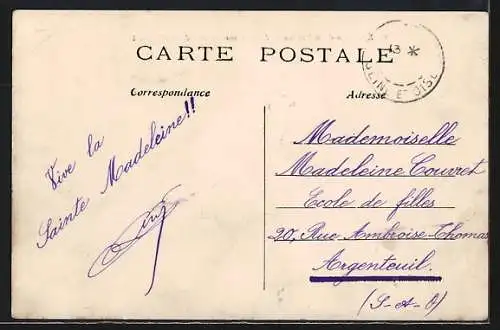 CARTE POSTALE
Correspondance
Adresse
13 *
SEINE ET OISE
Vive la
Sainte Madeleine!!
Mademoiselle
Madeleine Couvret
Ecole de filles
20, Rue Ambroise Thomas
Argenteuil.
(S-et-O)